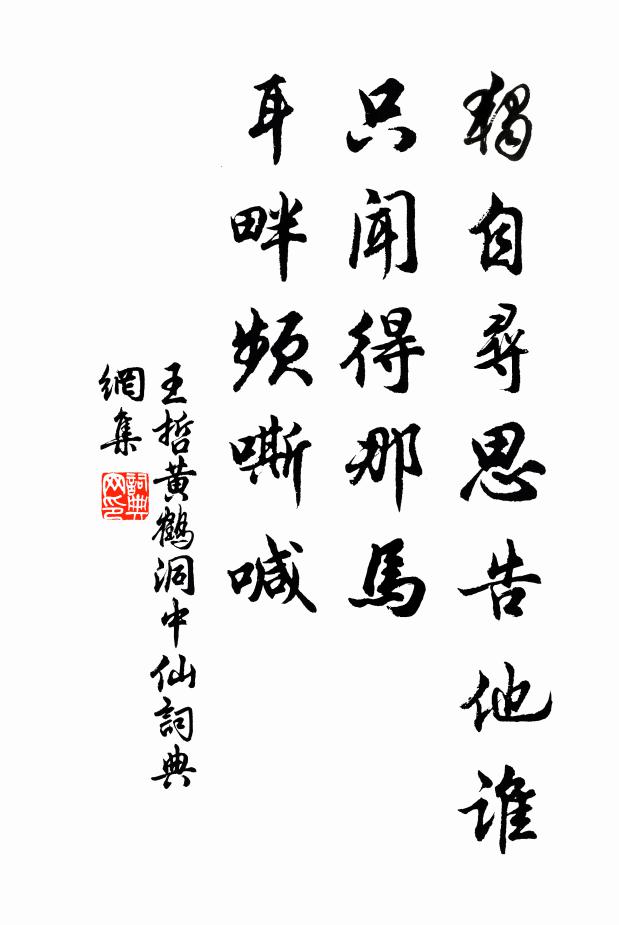 獨自尋思告他誰
只聞得那馬
耳畔頻嘶喊
王哲黄鶴洞中仙詞典
網集
詞典
网印